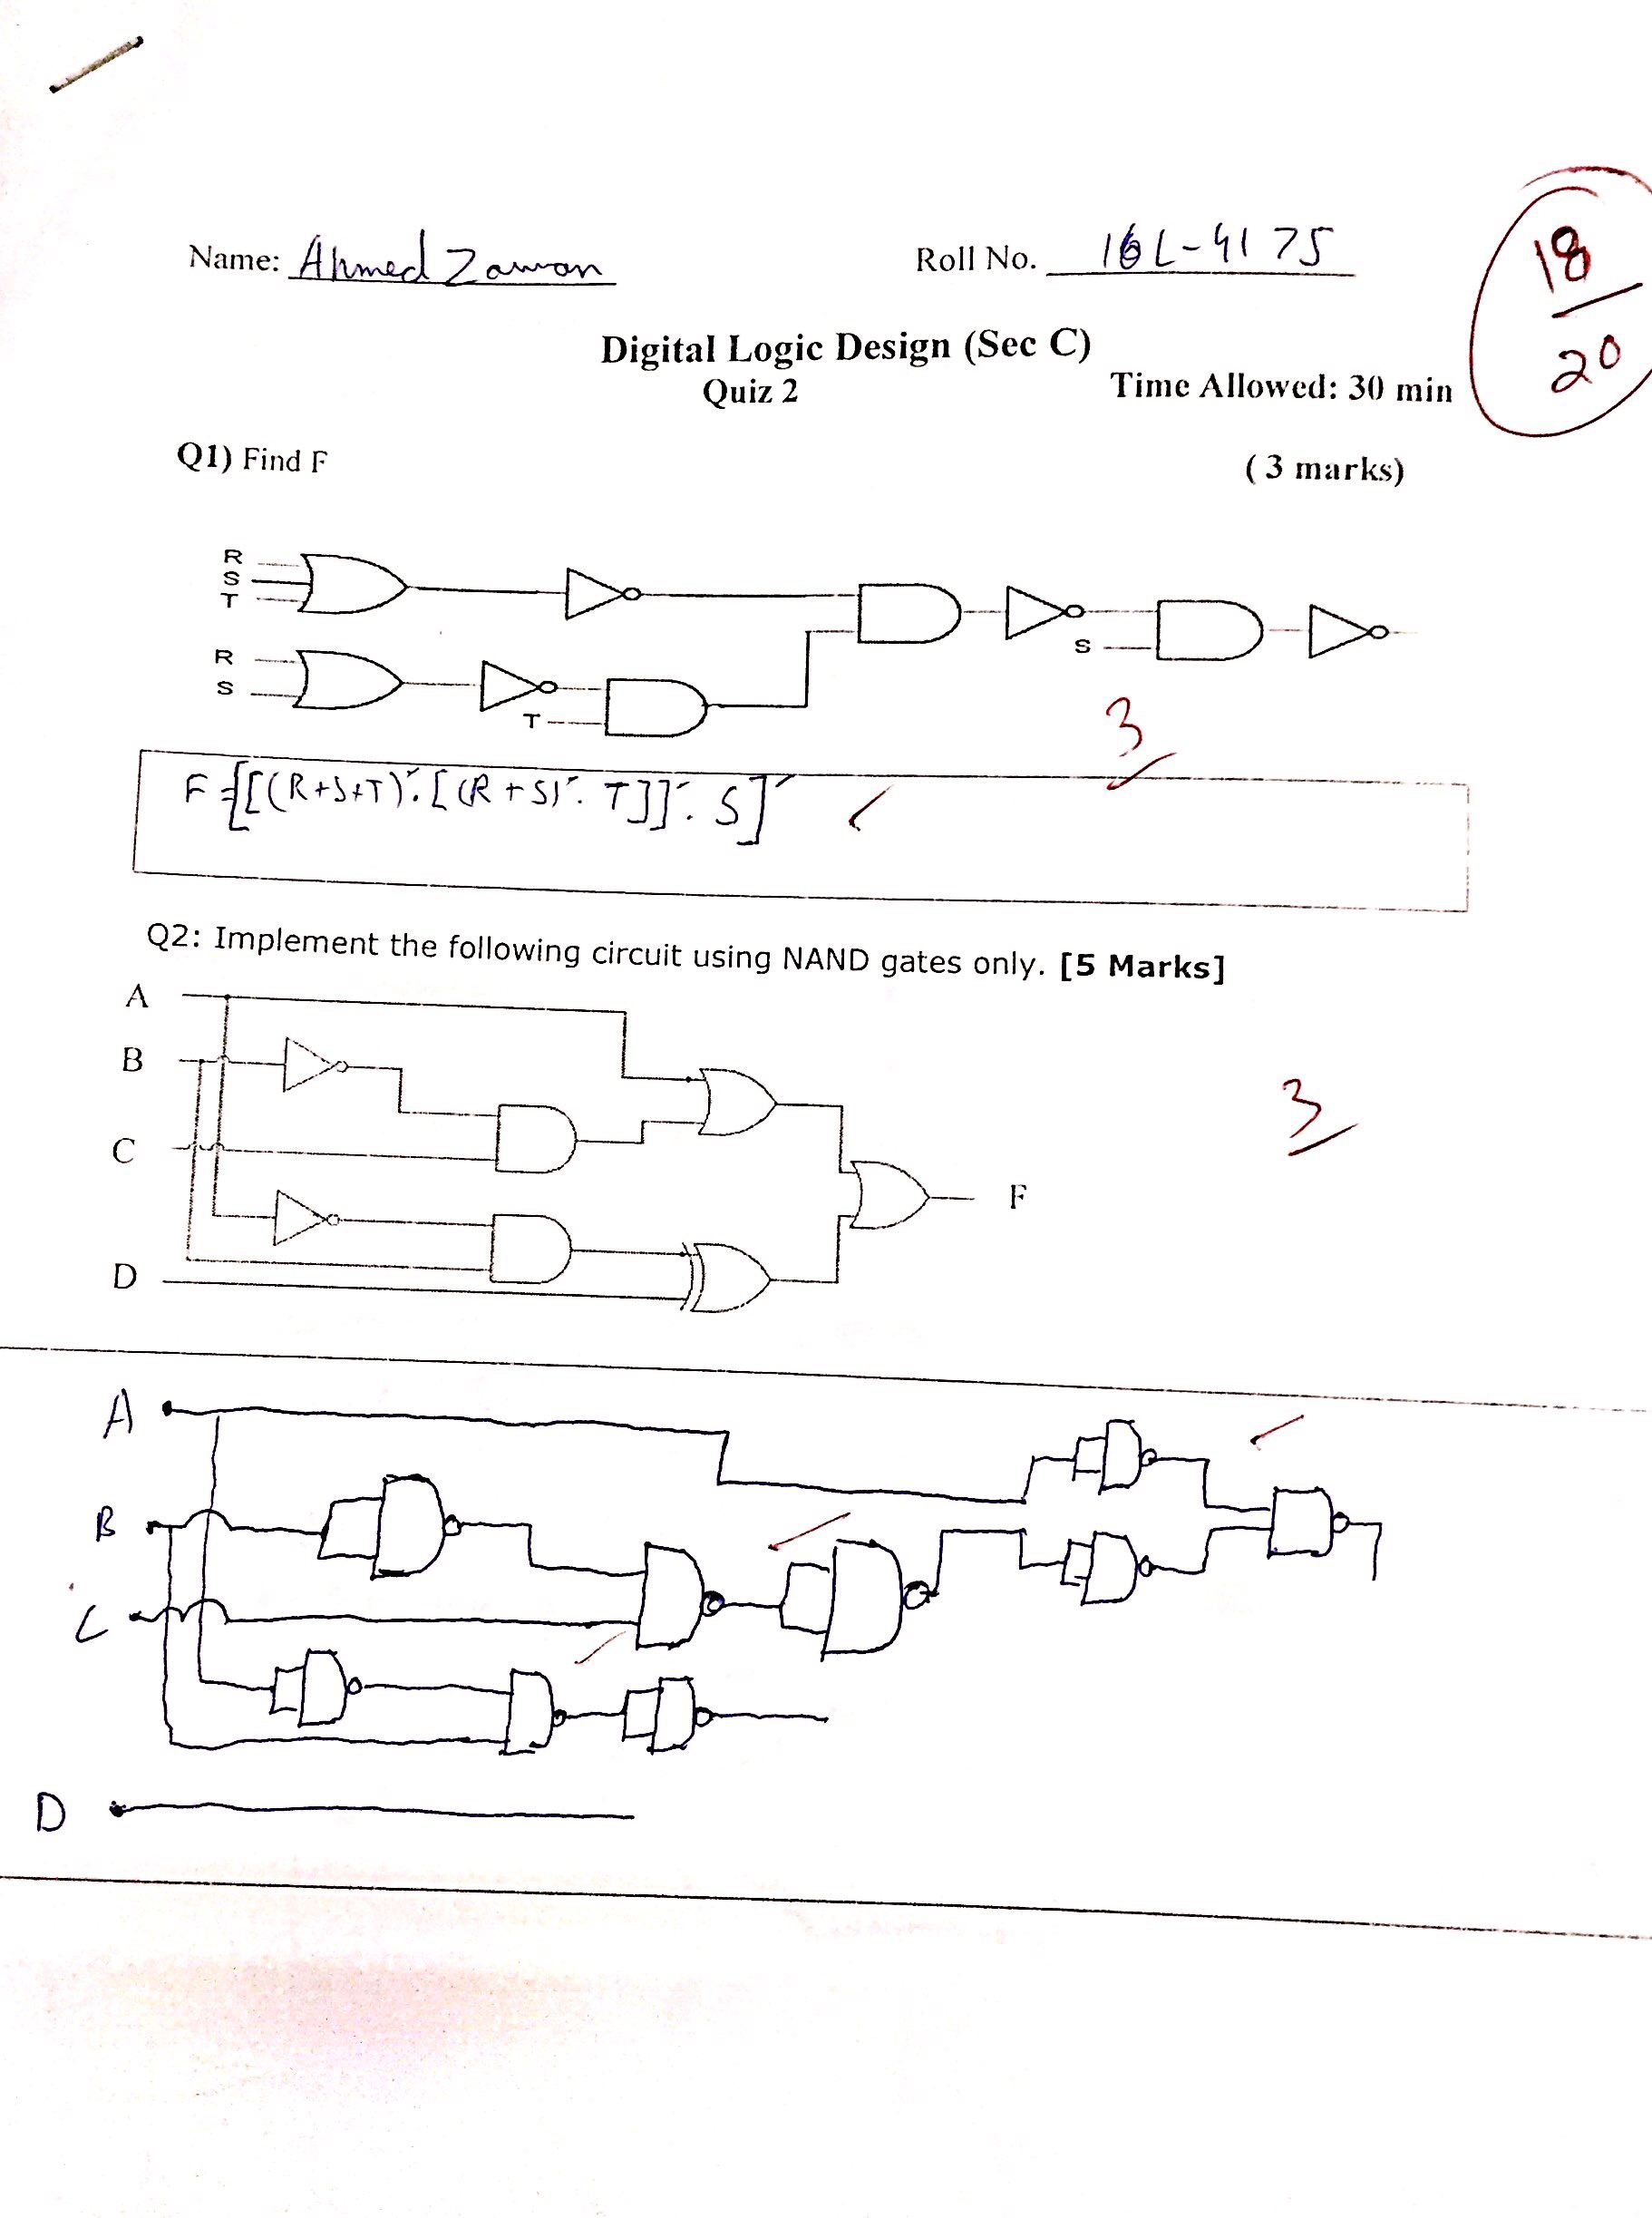 Name: Ahmed Zaman Roll No. 16L-4175
18
20
Digital Logic Design (Sec C)
Quiz 2 Time Allowed: 30 min
Q1) Find F ( 3 marks)
R
S
T
S
R
S
T
3
F = [[(R+S+T)'.[(R+S)'. T]]'. S]'
Q2: Implement the following circuit using NAND gates only. [5 Marks]
A
B
3
C
F
D
A
B
C
D